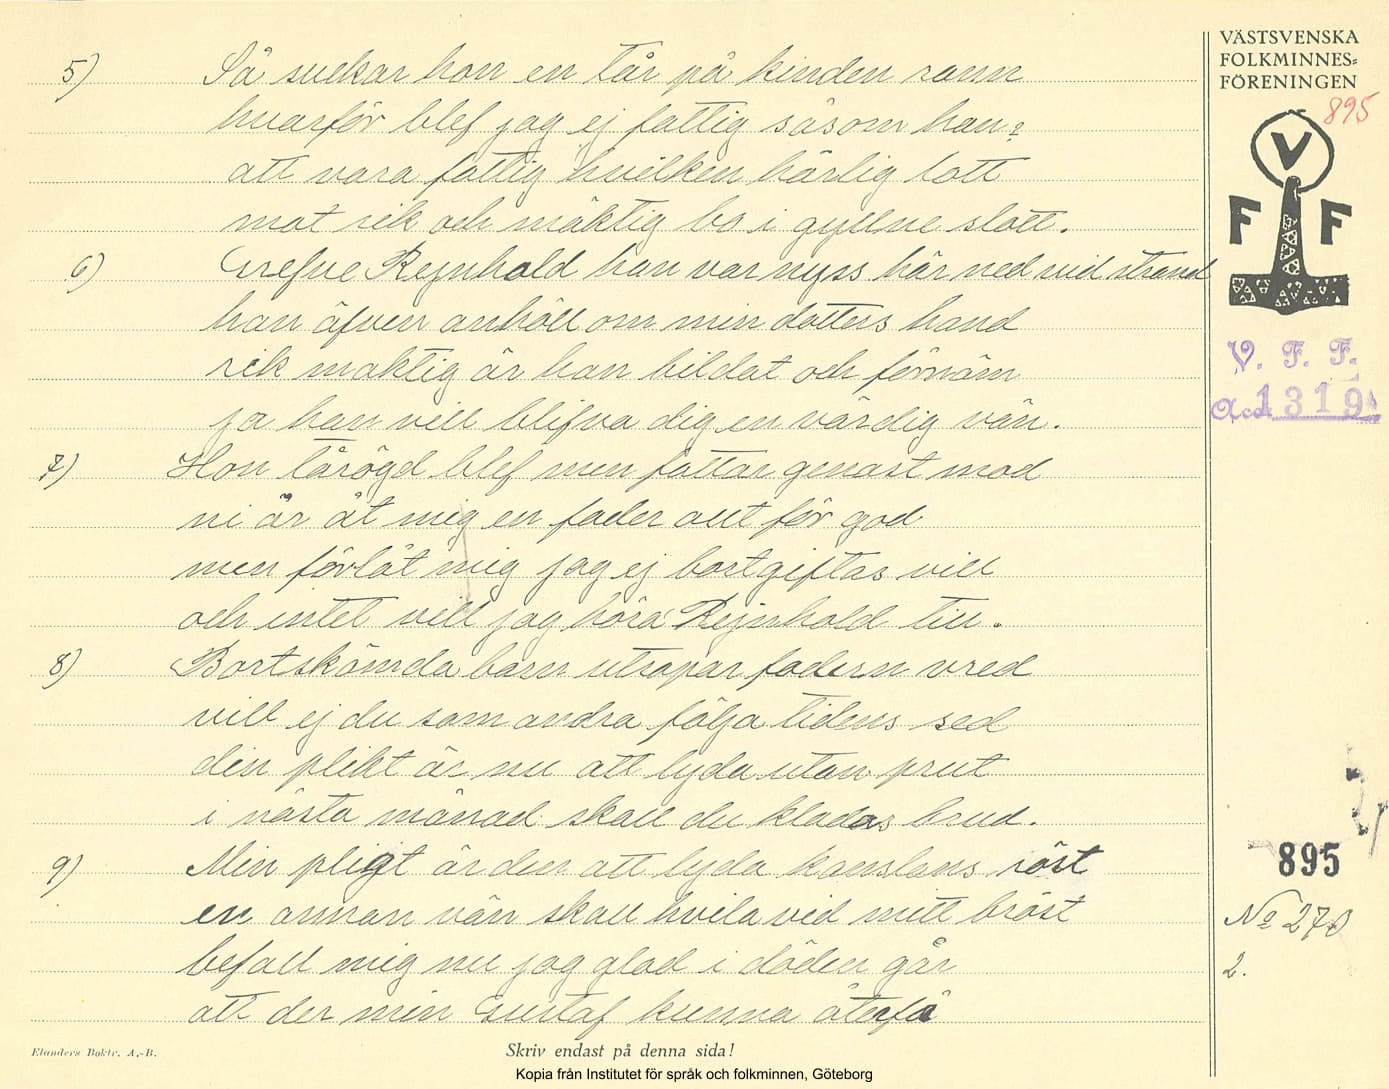 VÄSTSVENSKA
FOLKMINNES-
FÖRENINGEN
895
V
F F
V. F. F.
Acc. 1319
5) Så suckar hon en tår på kinden rann
hvarför blef jag ej fattig såsom han?
att vara fattig hvilken härlig lott
mot rik och mäktig bo i gyllne slott.
6) Grefve Rejnhold han var nyss här ned vid strand
han äfven anhöll om min dotters hand
rik maktig är han bildat och förnäm
ja han vill blifva dig en värdig vän.
7) Hon tårögd blef men fattar genast mod
ni är åt mig en fader allt för god
men förlåt mig jag ej bortgiftas vill
och intet vill jag höra Rejnhold till.
8) Bortskämda barn utropar fadern vred
vill ej du som andra följa tidens sed
din plikt är nu att lyda utan prut
i nästa månad skall du kladas brud.
9) Min pligt är den att lyda kanslans röst
en annan vän skall hvila vid mitt bröst
befall mig nu jag glad i döden går
att der min Gustaf kunna återfå
895
No 270
2.
Elanders Boktr. A.-B.
Skriv endast på denna sida!
Kopia från Institutet för språk och folkminnen, Göteborg